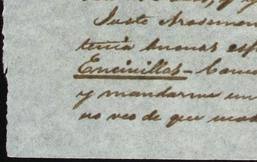 Justo Arosemen
tenia buenas esp
Encinillas - Com
y mandarme un
no veo de que mod